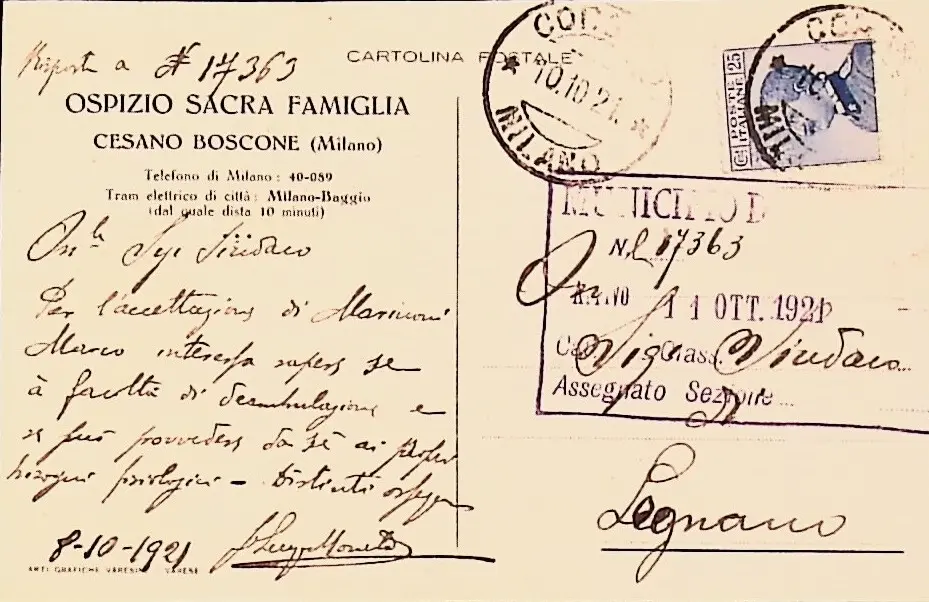 Risposta a N 17363
CARTOLINA POSTALE
OSPIZIO SACRA FAMIGLIA
CESANO BOSCONE (Milano)
Telefono di Milano: 40-089
Tram elettrico di città: Milano-Baggio
(dal quale dista 10 minuti)
On.le Sig. Sindaco
Per l'accettazione di Marinoni
Marco interessa sapere se
à facoltà di deambulazione e
se può provvedere da sè ai propri
bisogni fisiologici - Distinti ossequi
8-10-1921
ARTI GRAFICHE VARESINE VARESE
10.10.21.
MILANO
POSTE ITALIANE
Cmi 25
MUNICIPIO D
N. 17363
11 OTT. 1921
Cat. Class.
Assegnato Sezione
On. Sig. Sindaco
di
Legnano